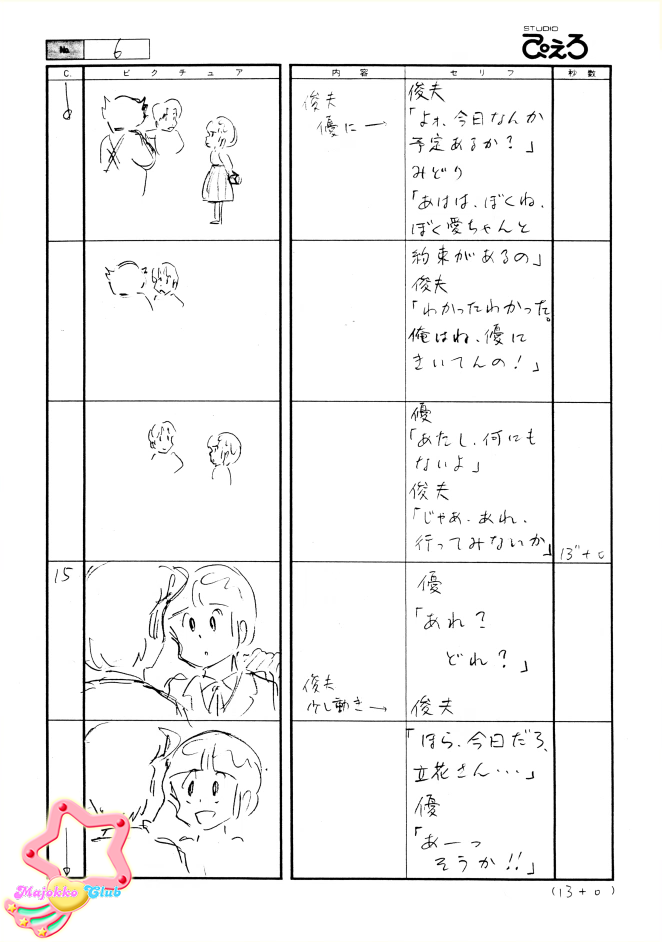 No. 6
STUDIO
ぴえろ
C. ピクチュア 内容 セリフ 秒数
俊夫
優に→
俊夫
「よォ、今日なんか
予定あるか?」
みどり
「あはは、ぼくね、
ぼく愛ちゃんと
約束があるの」
俊夫
「わかったわかった。
俺はね、優に
きいてんの!」
優
「あたし、何にも
ないよ」
俊夫
「じゃあ、あれ、
行ってみないか」
13"+0
15
俊夫
少し動き→
優
「あれ?
どれ?」
俊夫
「ほら、今日だろ、
立花さん・・・」
優
「あーっ
そうか!!」
(13+0)
Majokko Club